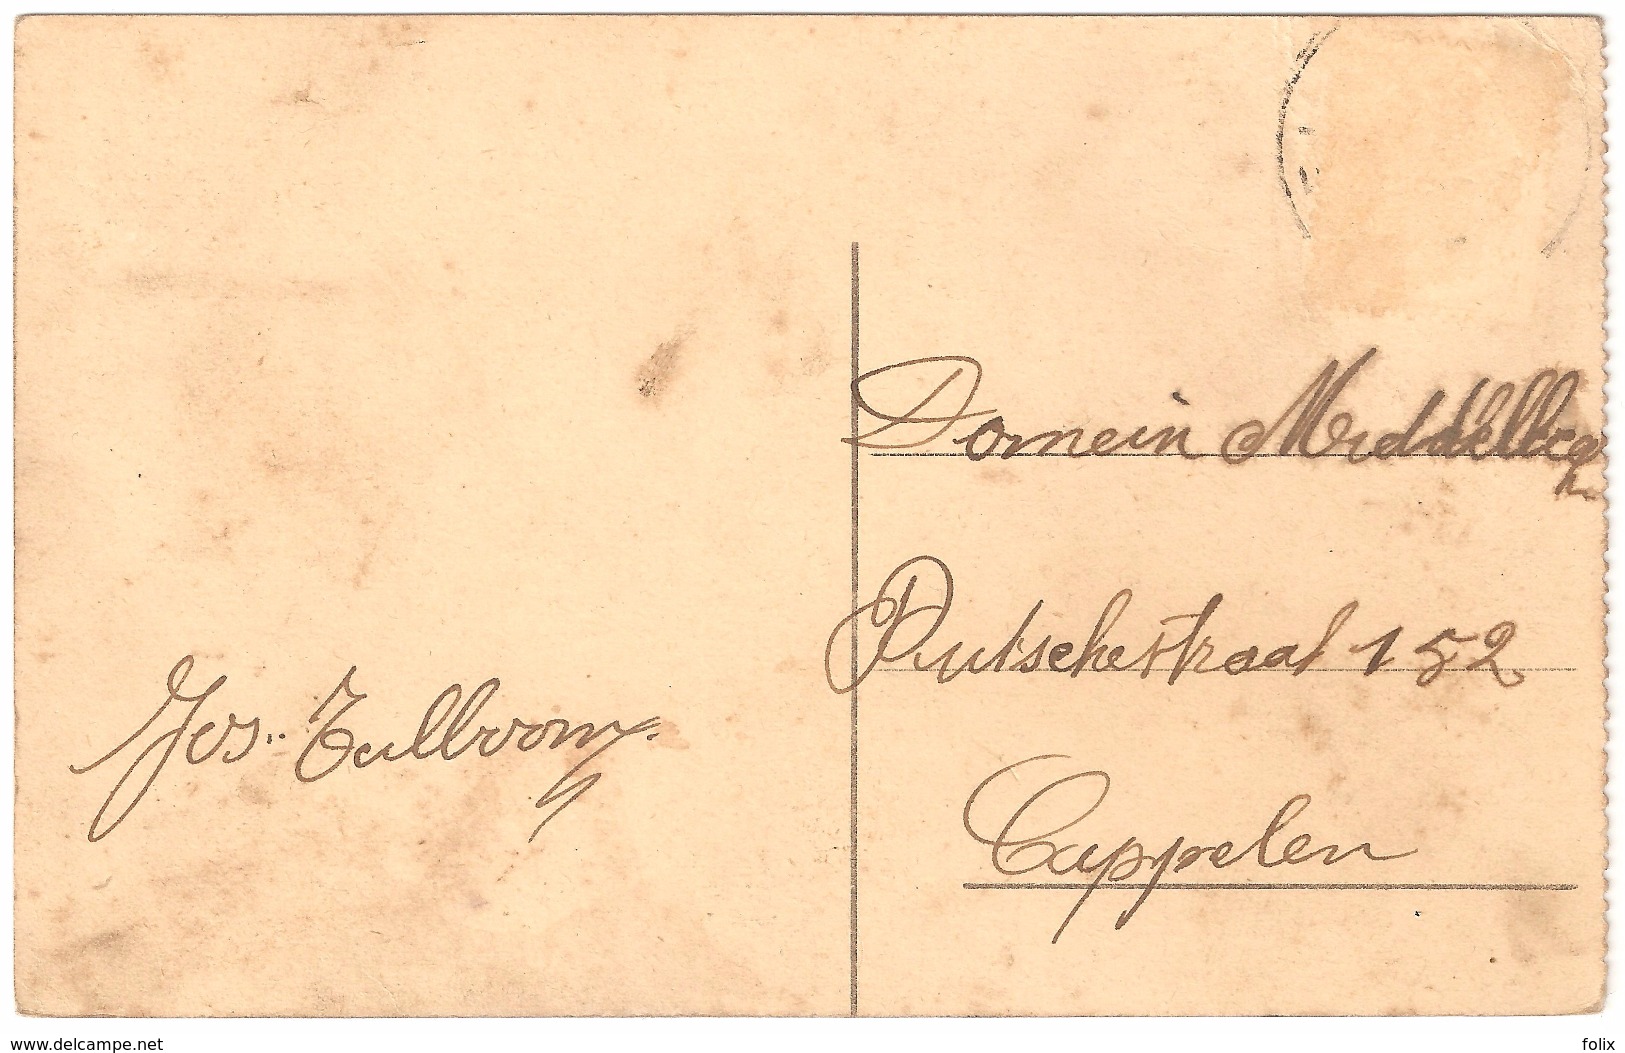 Jos. Tulboom
Domein Middelbeg
Putschestraat 152
Cappelen
www.delcampe.net
felix